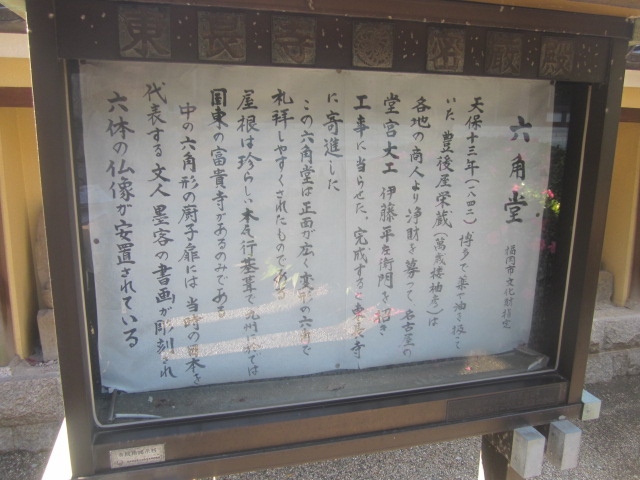 東長寺 密厳殿
六角堂
福岡市文化財指定
天保十三年(一八四二)博多で薬や油を扱って
いた、豊後屋栄蔵(萬歳楼袖彦)は
各地の商人より浄財を募って、名古屋の
堂宮大工 伊藤平左衛門を招き
工事に当らせた、完成すると東長寺
に寄進した
この六角堂は正面が広く変形の六角で
礼拝しやすくされたものである
屋根は珍らしい本瓦行基葺で九州に於ては
国東の富貴寺があるのみである
中の六角形の厨子扉には当時の日本を
代表する文人墨客の書画が彫刻され
六体の仏像が安置されている